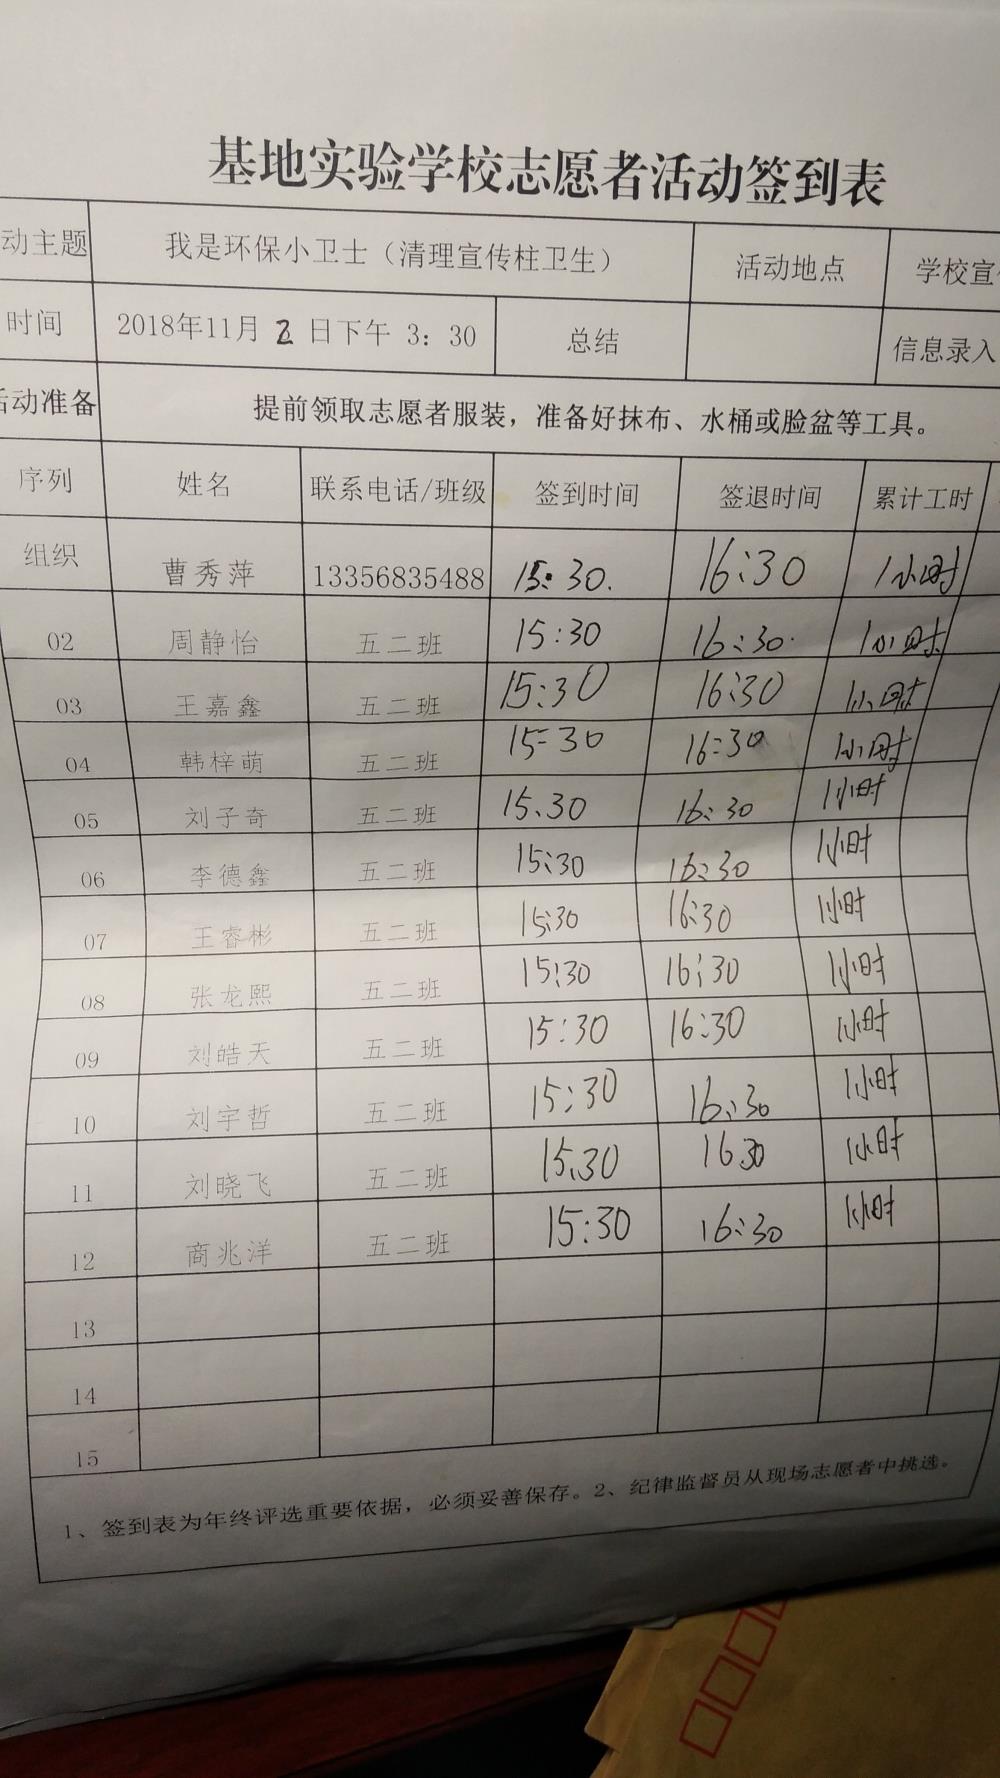 基地实验学校志愿者活动签到表
动主题 我是环保小卫士（清理宣传柱卫生） 活动地点 学校宣
时间 2018年11月 2 日下午 3：30 总结 信息录入
活动准备 提前领取志愿者服装，准备好抹布、水桶或脸盆等工具。
序列 姓名 联系电话/班级 签到时间 签退时间 累计工时
组织 曹秀萍 13356835488 15:30. 16:30 1小时
02 周静怡 五二班 15:30 16:30. 1小时
03 王嘉鑫 五二班 15:30 16:30 1小时
04 韩梓萌 五二班 15:30 16:30 1小时
05 刘子奇 五二班 15.30 16:30 1小时
06 李德鑫 五二班 15:30 16:30 1小时
07 王睿彬 五二班 15:30 16:30 1小时
08 张龙熙 五二班 15:30 16:30 1小时
09 刘皓天 五二班 15:30 16:30 1小时
10 刘宇哲 五二班 15:30 16:30 1小时
11 刘晓飞 五二班 15.30 16 30 1小时
12 商兆洋 五二班 15:30 16:30 1小时
13
14
15
1、签到表为年终评选重要依据，必须妥善保存。2、纪律监督员从现场志愿者中挑选。